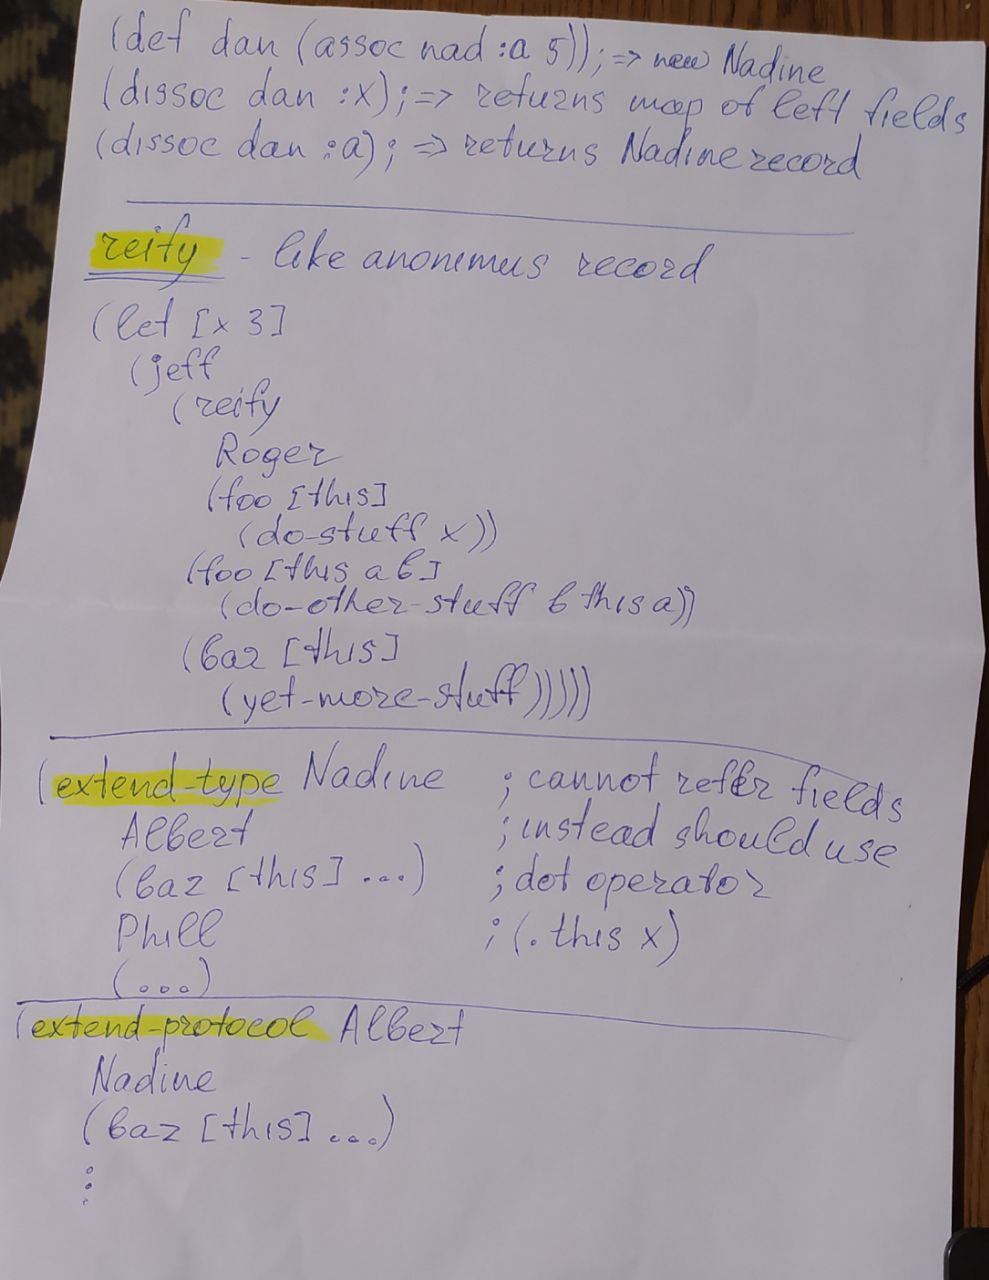 (def dan (assoc nad :a 5)) ;=> new Nadine
(dissoc dan :x) ;=> returns map of left fields
(dissoc dan :a) ; => returns Nadine record
reify - like anonimus record
(let [x 3]
(jeff
(reify
Roger
(foo [this]
(do-stuff x))
(foo [this a b]
(do-other-stuff b this a))
(baz [this]
(yet-more-stuff)))))
(extend-type Nadine ; cannot refer fields
Albert ; instead should use
(baz [this] ...) ; dot operator
Phill ; (. this x)
(...)
(extend-protocol Albert
Nadine
(baz [this] ...)
⋮